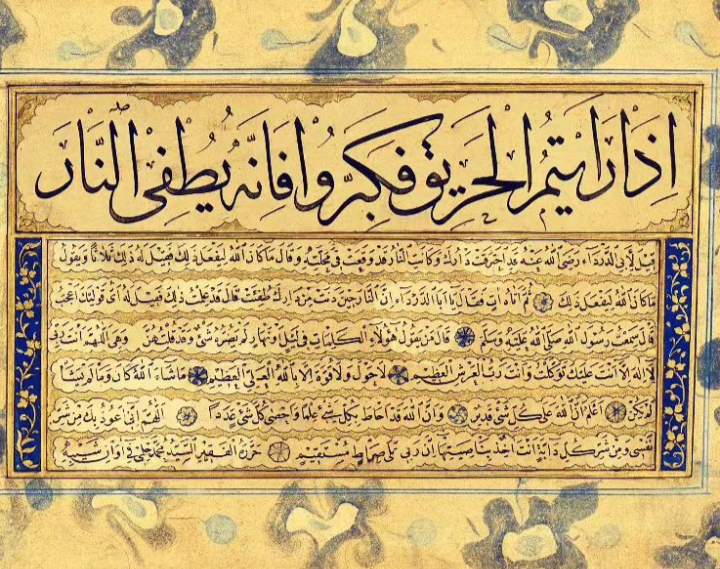 اِذَا رَاَيْتُمُ الْحَرِيقَ فَكَبِّرُوا فَاِنَّهُ يُطْفِئُ النَّارَ
قيل لابى الدرداء رضى الله عنه قد احترقت دارك وكانت النار قد وقعت فى محلته وقال ماكان الله ليفعل ذلك فقيل له ذلك ثلاثا ويقول
ماكان الله ليفعل ذلك ثم اتاه ات فقال يا ابا الدرداء ان النار حين دنت من دارك طفئت قال قد علمت ذلك فقيل له اى قوليك اعجب
قال سمعت رسول الله صلى الله عليه وسلم قال من يقول هؤلاء الكلمات فى ليل ونهار لم يضره شئ وقد قلتهن وهى اللهم انت ربى
لا اله الا انت عليك توكلت وانت رب العرش العظيم لاحول ولا قوة الا بالله العلى العظيم ماشاء الله كان وما لم يشأ
لم يكن اعلم ان الله على كل شئ قدير وان الله قد احاط بكل شئ علما واحصى كل شئ عددا اللهم انى اعوذ بك من شر
نفسى ومن شر كل دابة انت اخذ بناصيتها ان ربى على صراط مستقيم حرره الفقير السيد محمد